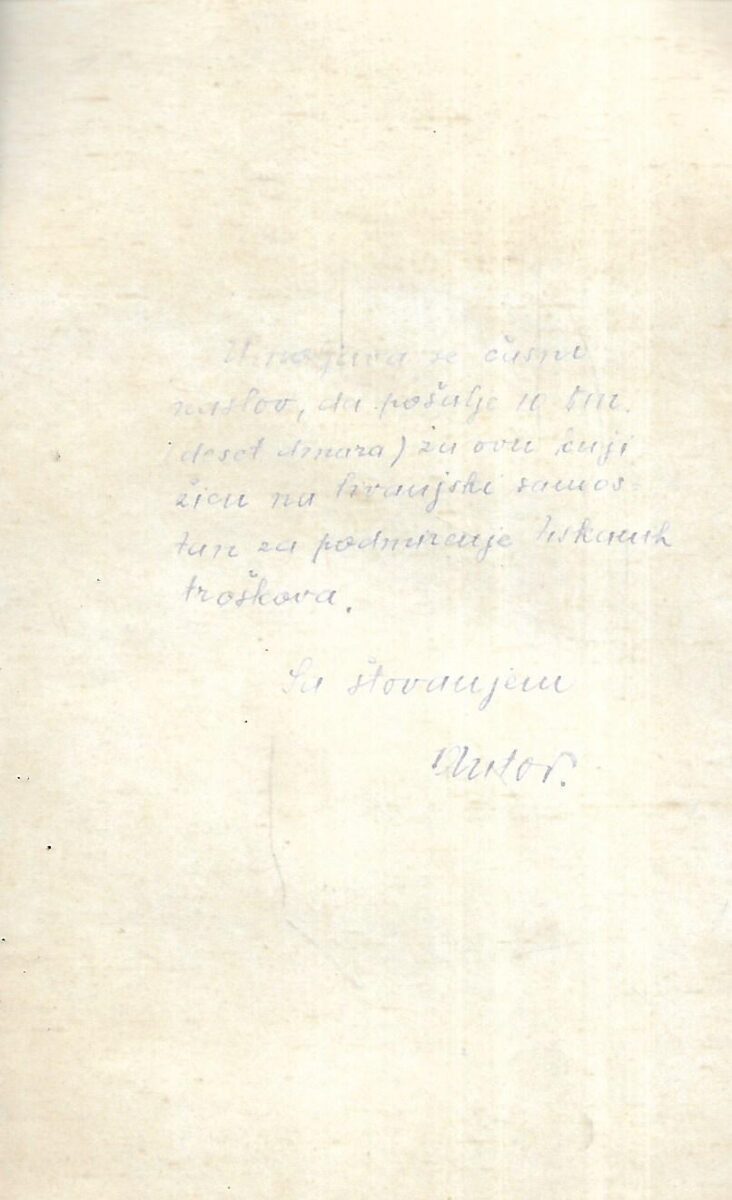 Umoljava se časni
naslov, da pošalje 10 Din.
(deset dinara) za ovu knji
žicu na livanjski samos-
tan za podmirenje tiskanih
troškova.
Sa štovanjem
Autor.